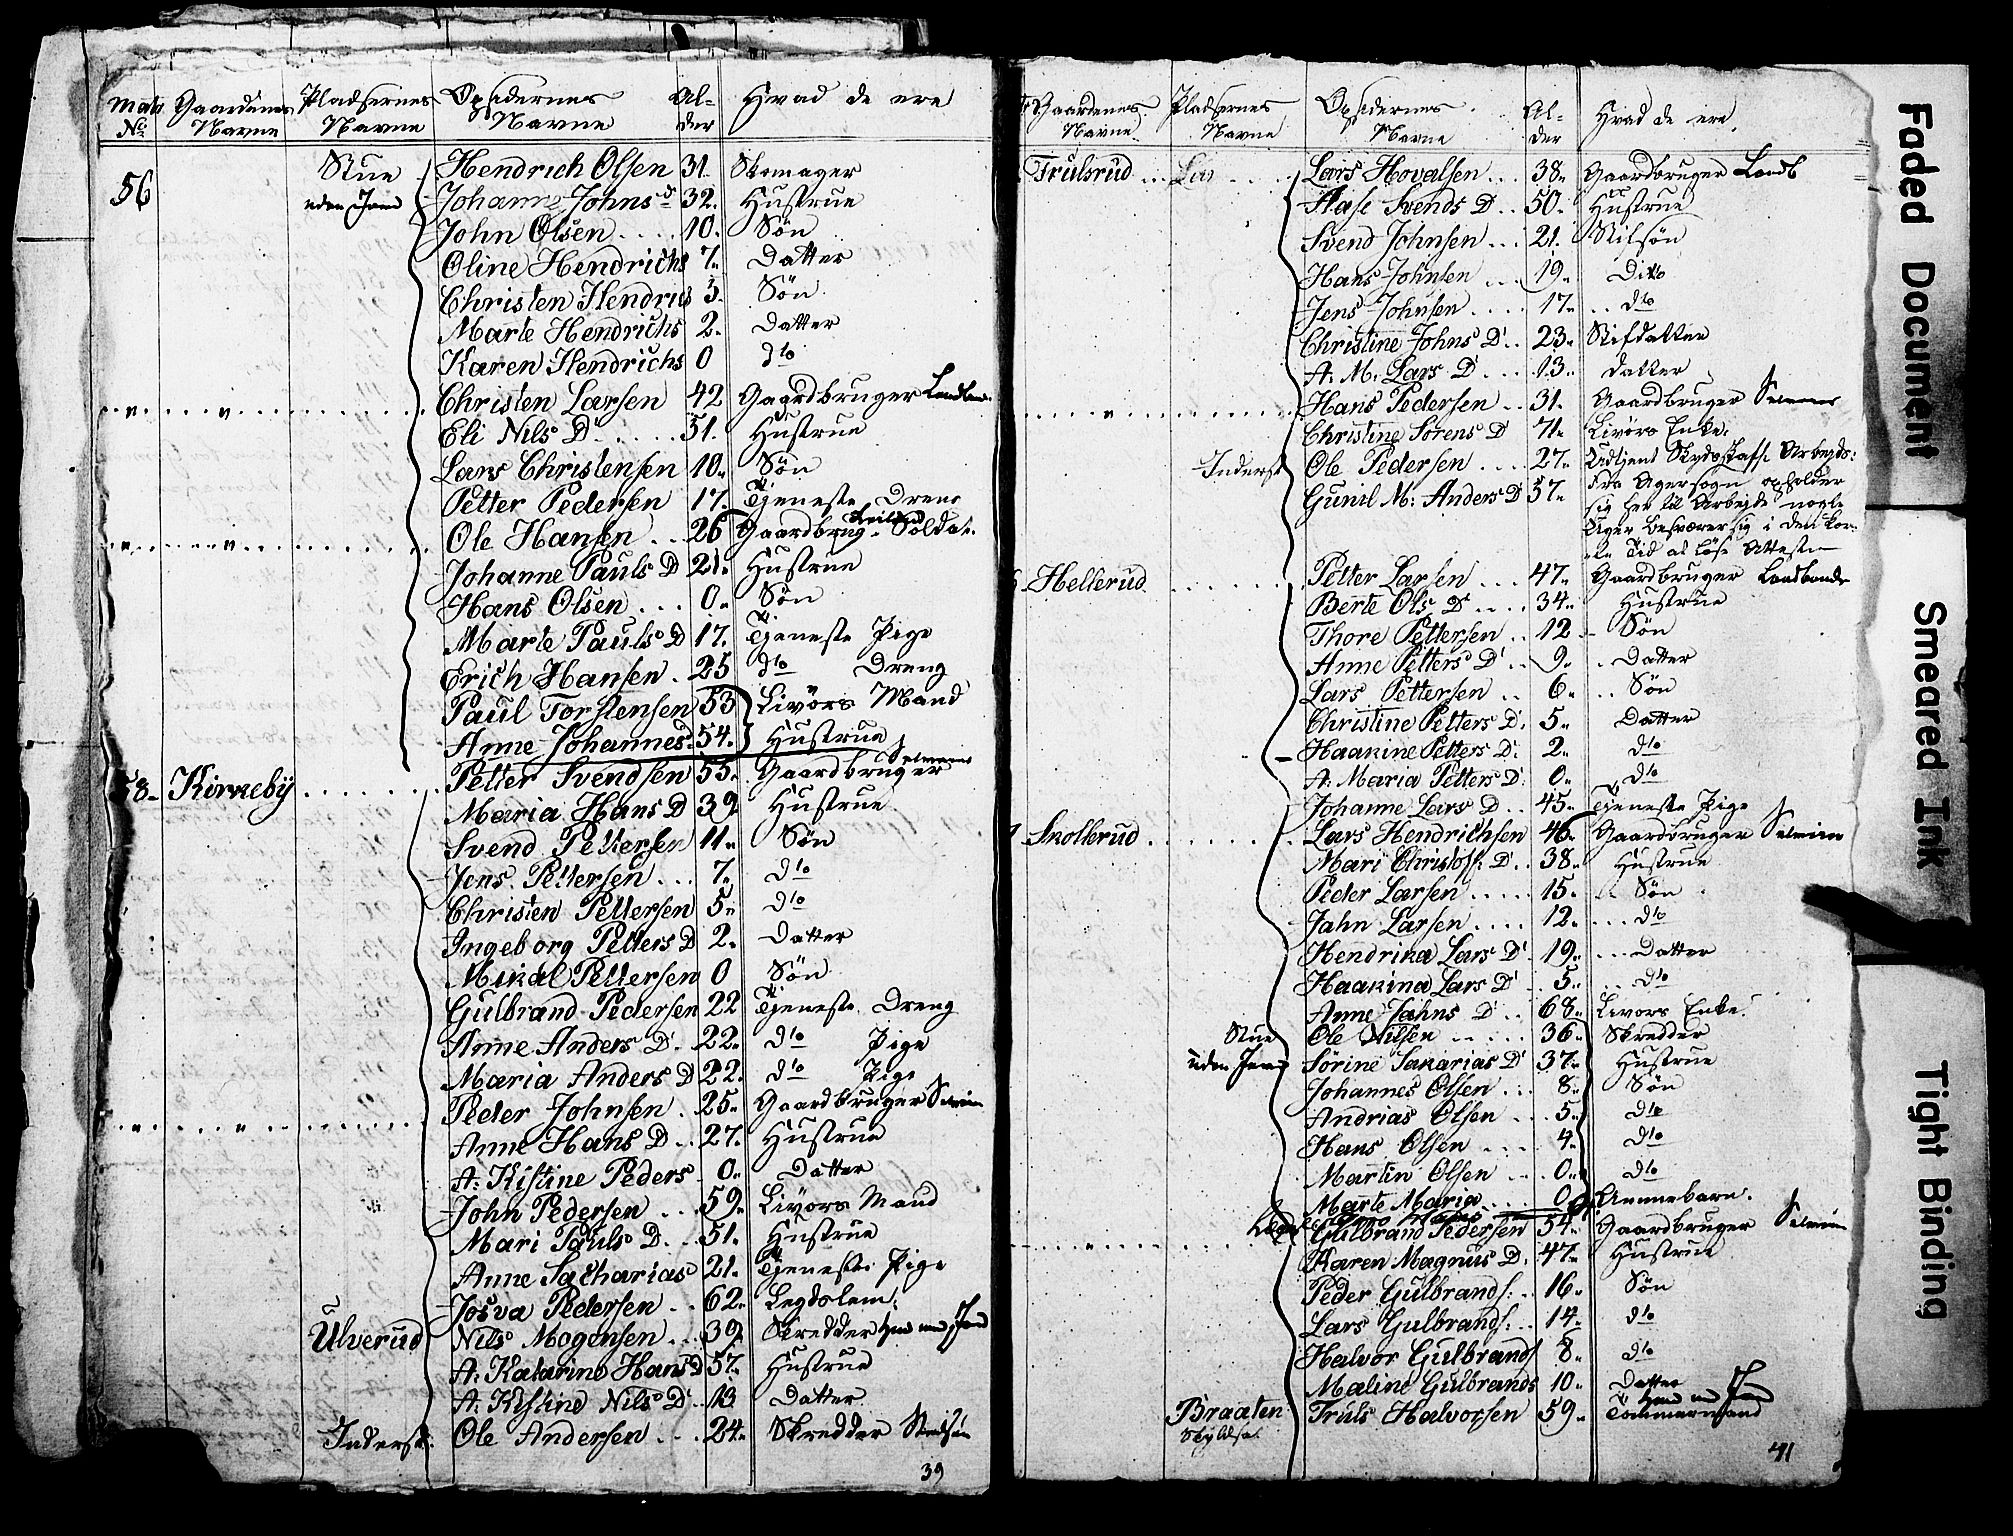 Matr Gaardenes Pladsernes Opsidernes Al- Hvad de ere
No Navne Navne Navne der
56 Stue Hendrich Olsen 31. Skomager
uden Jord Johanne Johnsd 32. Hustrue
John Olsen .... 10. Søn
Oline Hendrichs 7. Datter
Christen Hendrics 5. Søn
Marte Hendrichs 2. Datter
Karen Hendrichs 0 dto
Christen Larsen 42 Gaardbruger
Eli Nils D. .... 51. Hustrue
Lars Christensen 10. Søn
Petter Pedersen 17. Tjeneste Dreng
Ole Hansen .. 26 Gaardbrug. Soldat.
Johanne Pauls D 21. Hustrue
Hans Olsen ... 0. Søn
Marte Pauls D 17. Tjeneste Pige
Erich Hansen . 25 dto Dreng
Paul Torstensen 53 Livörs Mand
Anne Johannesd. 54. Hustrue
58. Kirkebÿ ...... Petter Svendsen 55. Gaardbruger Selveier
Maria Hans D 39 Hustrue
Svend Pettersen 11. Søn
Jens Pettersen ... 7. dto
Christen Pettersen 5. dto
Ingeborg Petters D 2. Datter
Mikal Pettersen 0 Søn
Gulbrand Pedersen 22 Tjeneste Dreng
Anne Anders D. 22. dto Pige
Maria Anders D 22. dto Pige
Peder Johnsen . 25. Gaardbruger
Anne Hans D .. 27. Hustrue
A: Kistine Peders 0. Datter
John Pedersen ... 59. Livörs Mand
Mari Pauls D. .. 51. Hustrue
Anne Sacharias 21. Tjeneste Pige
Josva Pedersen .. 62. Legdslem.
Ulverud Nils Mogensen ... 39. Skredder
A: Katarine Hans D 57. Hustrue
A: Kistine Nils D. 13 Datter
Inderst. Ole Andersen ... 24. Skredder
39
Gaardenes Pladsernes Opsidernes Al- Hvad de ere
Navne Navne Navne der
Trulsrud .. Lars Hovalsen ... 38. Gaardbruger
Aase Svends D .. 50. Hustrue
Svend Johnsen .. 21. Stifsøn
Hans Johnsen ... 19. Ditto
Jens Johnsen .... 17. .. dto
Christine Johns D. .. 23. Stifdatter
A: M. Lars D ... 13. Datter
Hans Pedersen .. 31. Gaardbruger
Christine Sörens D 71. Livörs Enke.
Inderst Ole Pedersen .... 27. Udtjent Arbejds:
Gunil M: Anders D 57. Fra Agersogn opholder
sig her til Arbejde nogle
Uger besværer sig i den kor-
te Tid at löse Attest
Hellerud Petter Larsen ... 47. Gaardbruger Landbonde
Berte Ols D. ... 34. Hustrue
Thore Pettersen .. 12 Søn
Anne Petters D. .. 9. .. Datter
Lars Pettersen .. 6. .. Søn
Christine Petters D. 5. Datter
Haakine Petters D. 2. dto
A: Maria Petters D. 0. dto
Johanne Lars D. .. 45. Tjeneste Pige
Skollerud ....... Lars Hendrichsen 46. Gaardbruger Selveier
Mari Christoff: D. . 38. Hustrue
Peder Larsen ..... 15. .. Søn
Jahn Larsen .... 12. ... dto
Hendrika Lars D. 19. ... Datter
Haakina Lars D . 5. .. dto
Anne Jahns D .. 68. Livörs Enke.
Stue Ole Nilsen ..... 36. Skredder
uden Jord Sörine Sakarias D. 37. Hustrue
Johannes Olsen ... 8. Søn
Andrias Olsen .... 5. dto
Hans Olsen .... 4. dto
Martin Olsen ... 0. dto
Marte Maria .... 0. Ammebarn.
Gulbrand Pedersen 54. Gaardbruger Selveier
Karen Magnus D. 47. Hustrue
Peder Gulbrands: .. 16. Søn
Lars Gulbrands: .. 14. dto
Halvor Gulbrands 8. dto
Maline Gulbrands 10. Datter
Braaten Truls Halvorsen 59. Tömmermand
41
Faded Document
Smeared Ink
Tight Binding